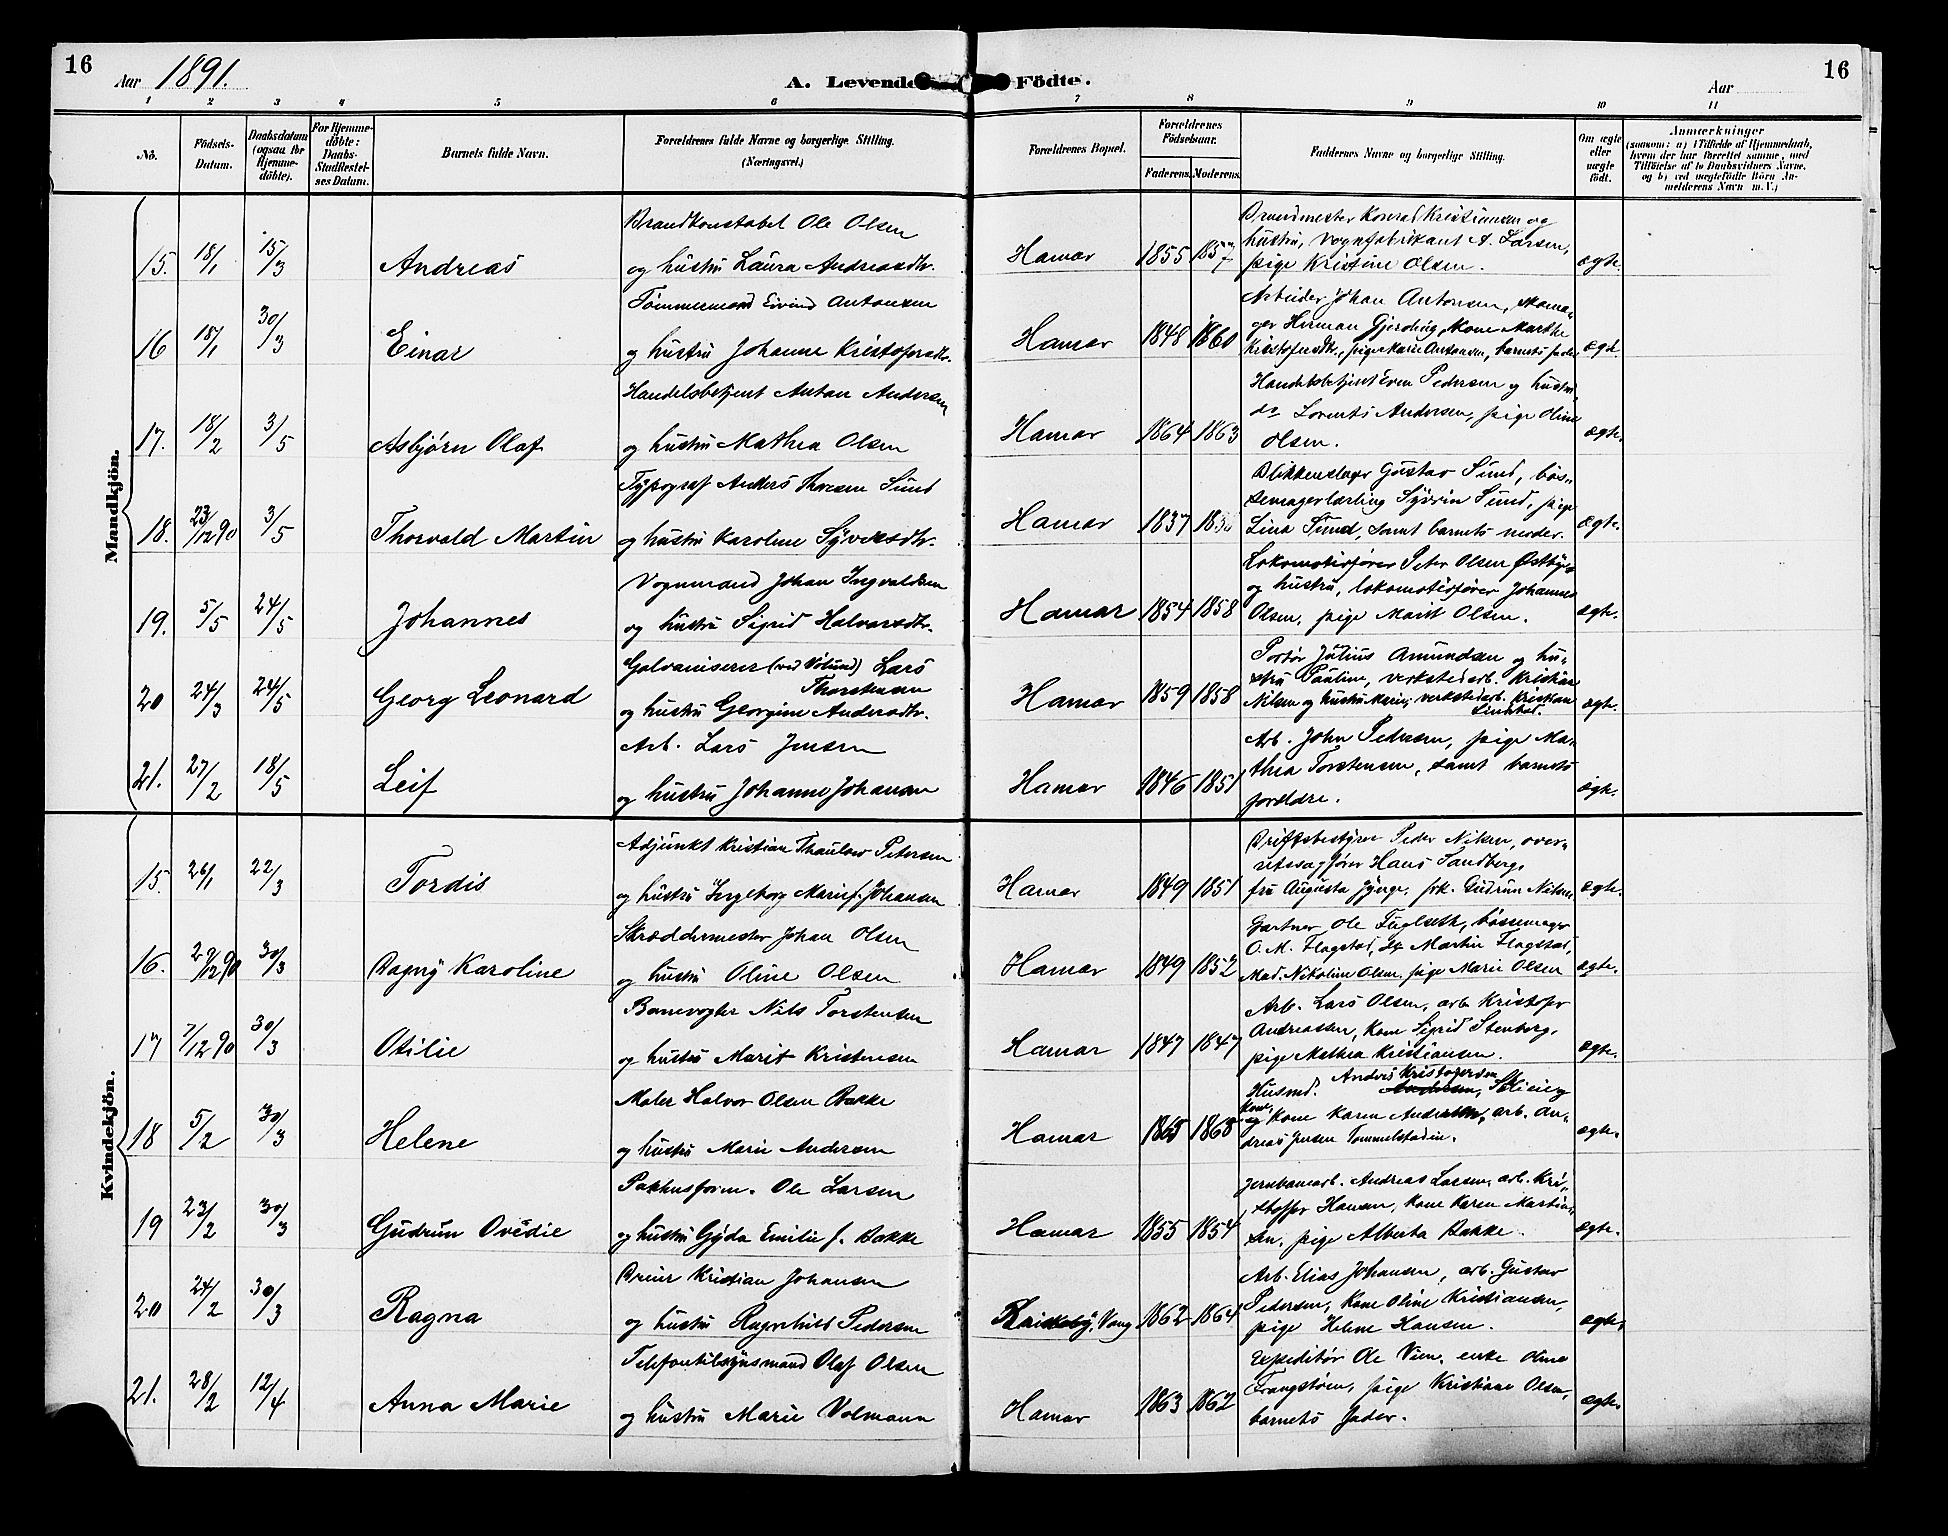 16
Aar 1891.
A. Levende Födte.
Aar
16
1 2 3 4 5 6 7 8 9 10 11
No.
Födsels-Datum.
Daabsdatum (ogsaa for Hjemme-döbte).
For Hjemme-döbte: Daabs-Stadfæstel-ses Datum.
Barnets fulde Navn.
Forældrenes fulde Navne og borgerlige Stilling. (Næringsvei.)
Forældrenes Bopæl.
Forældrenes Födselsaar.
Faderens. Moderens.
Faddernes Navne og borgerlige Stilling.
Om ægte eller uægte födt.
Anmærkninger
(saasom: a) i Tilfælde af Hjemmedaab, hvem der har forrettet samme, med Tilföielse af to Daabsvidners Navne, og b) ved uægtefödte Börn An-melderens Navn m. V.)
Mandkjön.
15. 18/1 15/3 Andreas
Brandkonstabel Ole Olsen
og hustru Laura Andreasdtr.
Hamar 1855 1857
Brandmester Konrad Kristiansen og
hustru, vognfabrikant A. Larsen,
pige Kristine Olsen.
ægte.
16 18/1 30/3 Einar
Tömmermand Eivind Antonsen
og hustru Johanne Kristofersdtr.
Hamar 1848 1860
Arbeider Johan Antonsen, skoma-
ger Herman Gjerding, kone Marthe
Kristofersdtr., pige Marie Antonsen, barnets fader
ægt.
17. 18/2 3/5 Asbjørn Olaf
Handelsbetjent Anton Andersen
og hustru Mathea Olsen
Hamar 1864 1863
Handelsbetjent Even Pedersen og hustru,
do Lorents Andersen, pige Oline
Olsen.
ægte.
18. 23/12 90 3/5 Thorvald Martin
Typograf Anders Thoresen Sund
og hustru Karoline Syversdtr.
Hamar 1837
Blikkenslager Gustav Sund, bös-
semagerlærling Syverin Sund, pige
Lina Sund, samt barnets moder.
ægte.
19. 5/5 24/5 Johannes
Vognmand Johan Ingvaldsen
og hustru Sigrid Halvorsdtr.
Hamar 1854 1858
Lokomotivfører Peter Olsen Østbye
og hustru, lokomotivfører Johannes
Olsen, pige Marit Olsen.
ægte.
20 24/3 24/5 Georg Leonard
Galvaniserer (ved Vølund) Lars
Thorstensen
og hustru Georgine Andersdtr.
Hamar 1859 1858
Portör Julius Amundsen og hu-
stru Pauline, verkstedarb. Kristian
Nilsen og hustru Marie, verkstedarb. Kristian
ægte.
21. 27/2 18/5 Leif
Arb. Lars Jensen
og hustru Johanne Johansen
Hamar 1846 1851
Arb. John Pedersen, pige Ma-
thea Torstensen, samt barnets
forældre.
ægte.
Kvindekjön.
15. 26/1 22/3 Tordis
Adjunkt Kristian Thaulow Petersen
og hustru Ingeborg Marie f. Johansen
Hamar 1849 1851
Driftsbestyrer Peder Nilsen, over-
retssagfører Hans Sandberg,
fru Augusta Jynge, frk. Gudrun Nilsen
ægte.
16. 27/12 90 30/3 Dagny Karoline
Skræddermester Johan Olsen
og hustru Oline Olsen
Hamar 1849 1852
Gartner Ole Fuglseth, bössemager
O. M. Flagstad, Martin Flagstad,
Mad. Nikoline Olsen, pige Marie Olsen
ægte.
17 7/12 90 30/3 Otilie
Banevogter Nils Torstensen
og hustru Marit Kristensen
Hamar 1847 1847
Arb. Lars Olsen, arb. Kristofer
Andreassen, kone Sigrid Stenberg,
pige Mathea Kristiansen.
ægte.
18 5/2 30/3 Helene
Maler Halvor Olsen Bakke
og hustru Marie Andersen
Hamar 1865 1868
Husmd. Anders Kristofersen
kone Karen Andersen, arb. An-
dreas Jensen Tommelstadin.
ægte.
19 23/2 30/3 Gudrun Ovédie
Pakhusform. Ole Larsen
og hustru Gyda Emilie f. Bakke
Hamar 1855 1854
Jernbanearb. Andreas Larsen, arb. Kri-
stoffer Hansen, kone Karen Martin-
sen, pige Alberta Bakke.
ægte.
20 24/2 30/3 Ragna
Kristian Johansen
og hustru Ragnhild Pedersen
Vang 1862 1864
Arb. Elias Johansen, arb. Gustav
Pedersen, kone Oline Kristiansen,
pige Helene Hansen.
ægte.
21. 28/2 12/4 Anna Marie
Telefontilsynsmand Olaf Olsen
og hustru Marie Volmann
Hamar 1863 1862
Expeditör Ole Vien, enke Oline
pige Kristiane Olsen,
barnets fader.
ægte.